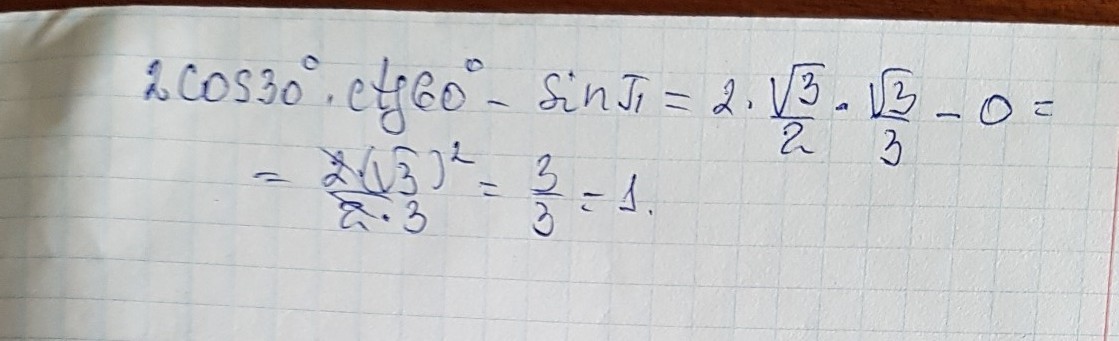 2cos30°·ctg60° - sinπ = 2·√3/2·√3/3 - 0 =
= 2·(√3)²/2·3 = 3/3 = 1.